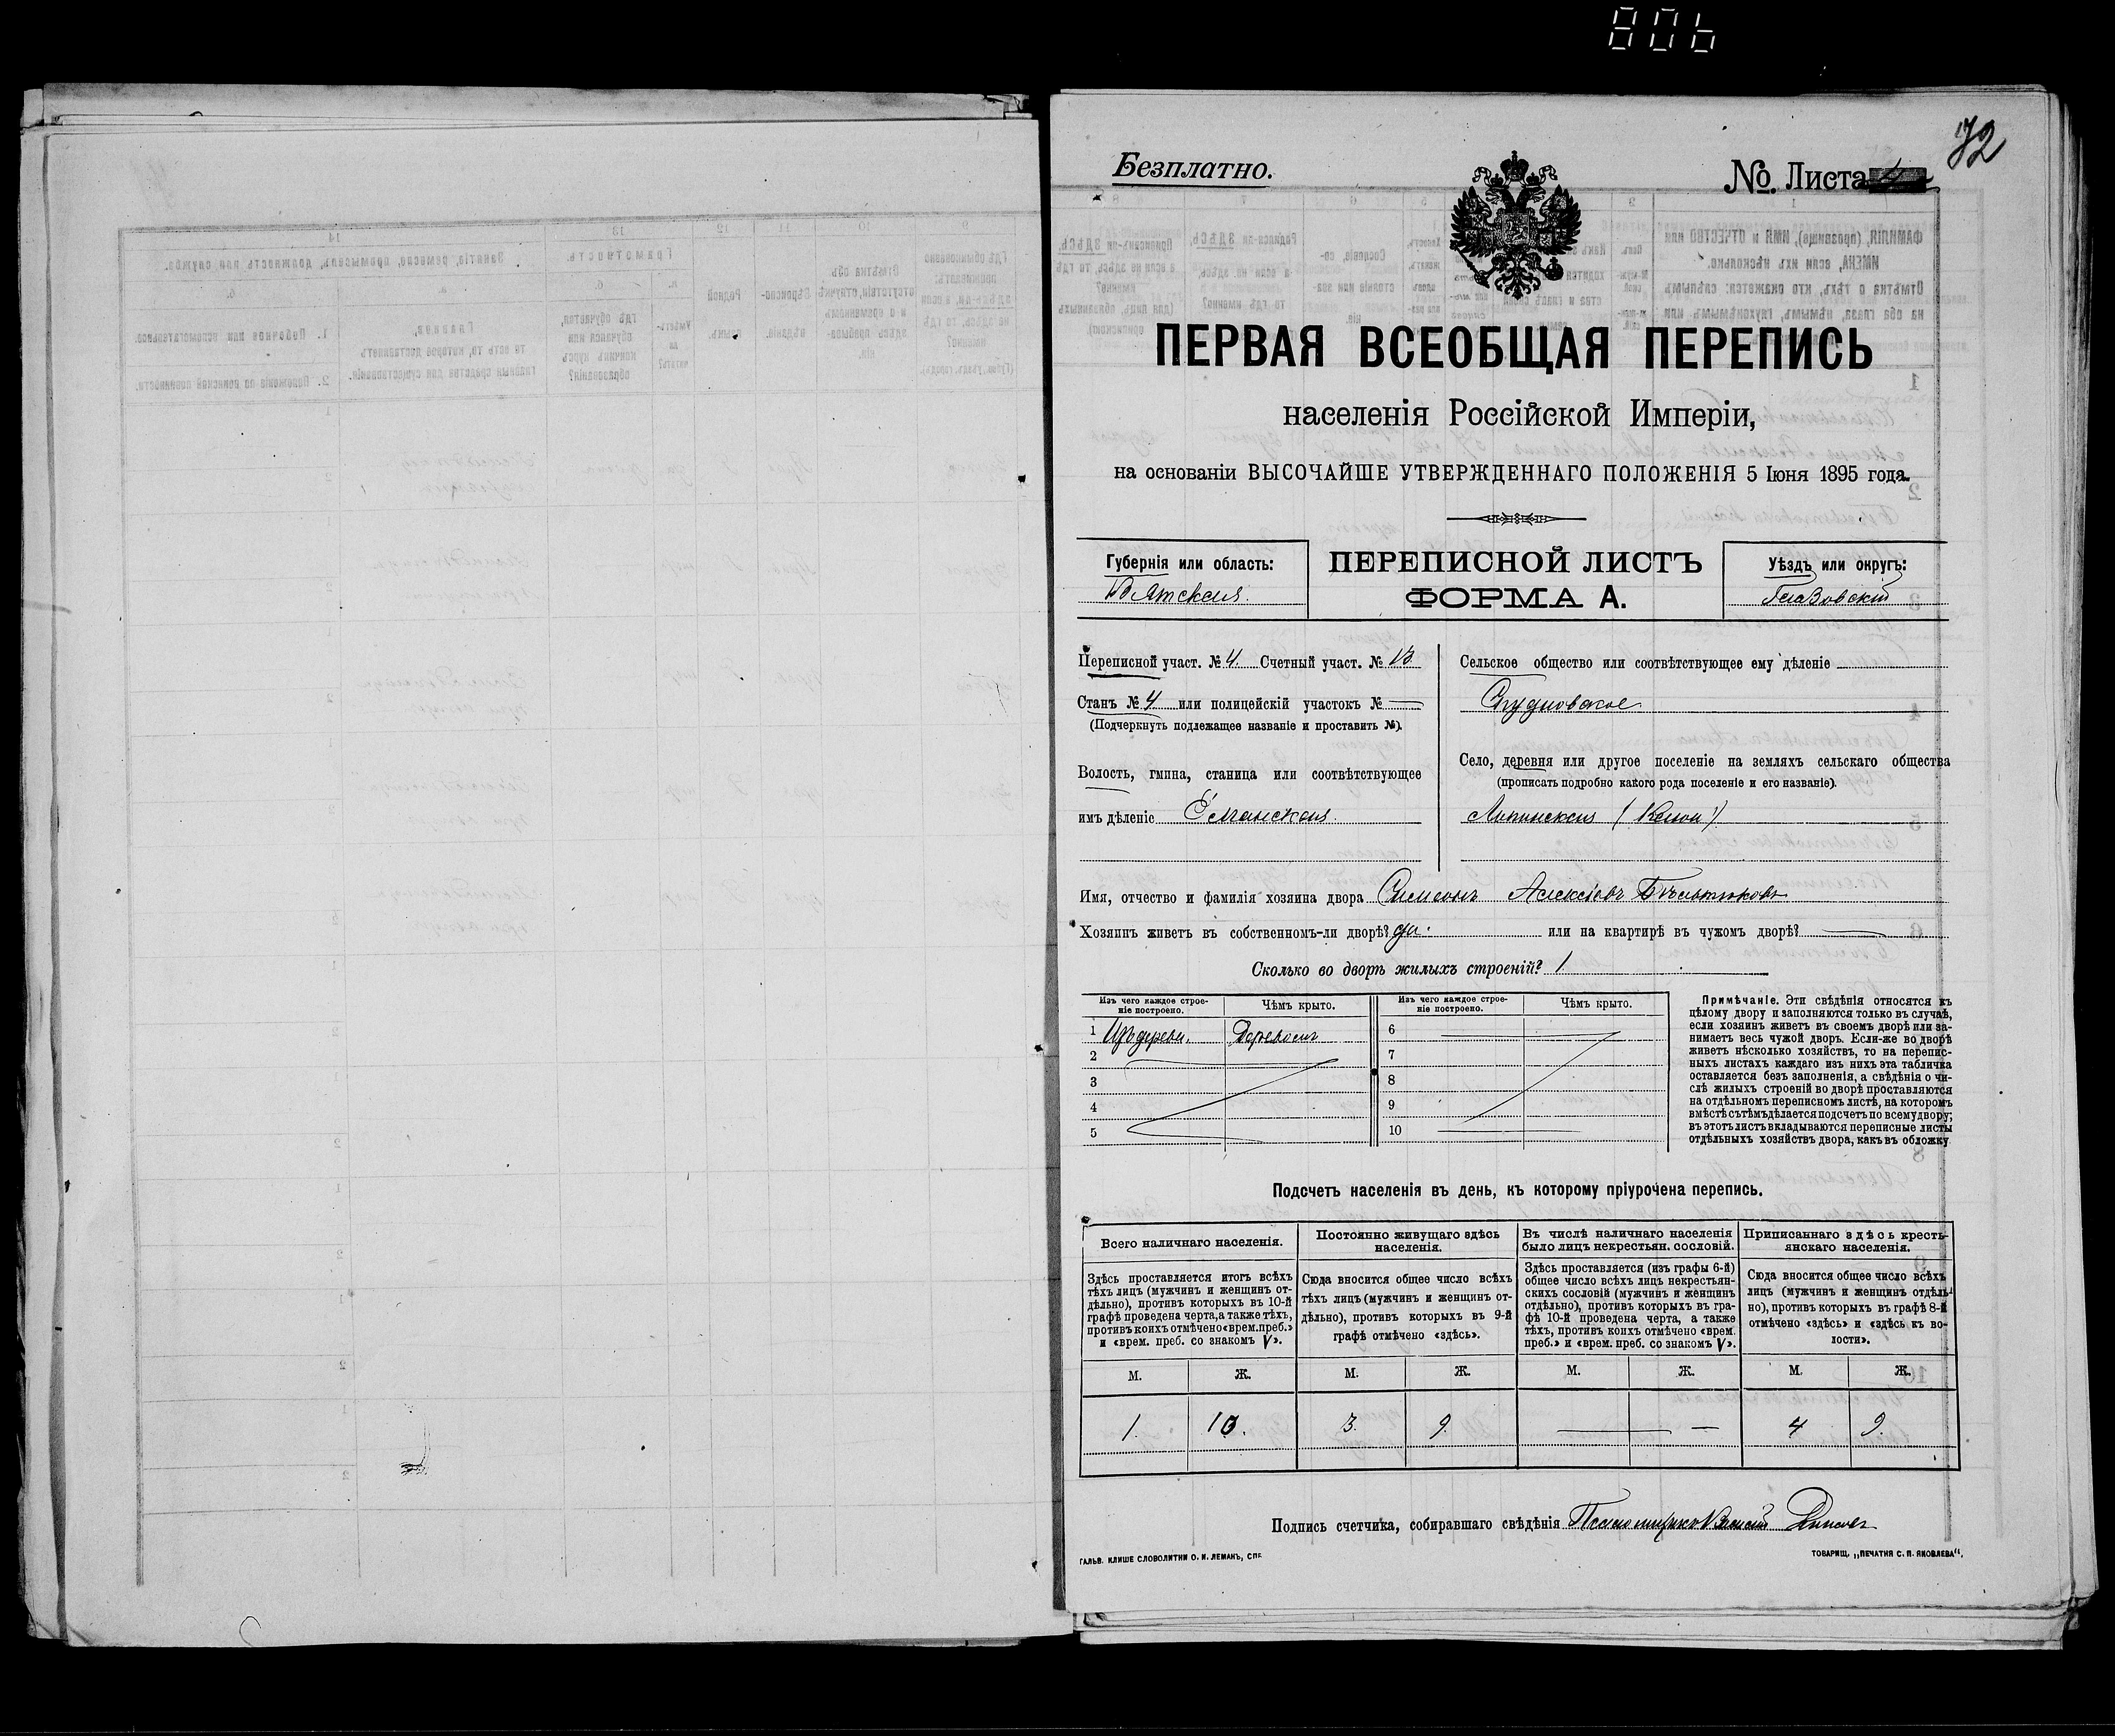 806
72
Безплатно.
№ Листа
ПЕРВАЯ ВСЕОБЩАЯ ПЕРЕПИСЬ
населенія Россійской Имперіи,
на основаніи ВЫСОЧАЙШЕ УТВЕРЖДЕННАГО ПОЛОЖЕНІЯ 5 Іюня 1895 года.
Губернія или область:
Вятская.
ПЕРЕПИСНОЙ ЛИСТЪ
ФОРМА А.
Уѣздъ или округъ:
Глазовскій
Переписной участ. № 4. Счетный участ. № 13.
Станъ № 4 или полицейскій участокъ № —
(Подчеркнуть подлежащее названіе и проставить №).
Волость, гмина, станица или соотвѣтствующее
имъ дѣленіе Еланская.
Сельское общество или соотвѣтствующее ему дѣленіе
Село, деревня или другое поселеніе на земляхъ сельскаго общества
(прописать подробно какого рода поселеніе и его названіе).
Липинская
Имя, отчество и фамилія хозяина двора Симеонъ Алексіевъ
Хозяинъ живетъ въ собственномъ-ли дворѣ? да. или на квартирѣ въ чужомъ дворѣ? —
Сколько во дворѣ жилыхъ строеній? 1
Изъ чего каждое строе-
ніе построено.
Чѣмъ крыто.
Изъ чего каждое строе-
ніе построено.
Чѣмъ крыто.
1 Изъ дерева. Деревомъ
2
3
4
5
6
7
8
9
10
Примѣчаніе. Эти свѣдѣнія относятся къ
цѣлому двору и заполняются только въ случаѣ,
если хозяинъ живетъ въ своемъ дворѣ или за-
нимаетъ весь чужой дворъ. Если-же во дворѣ
живетъ нѣсколько хозяйствъ, то на перепис-
ныхъ листахъ каждаго изъ нихъ эта табличка
оставляется безъ заполненія, а свѣдѣнія о чи-
слѣ жилыхъ строеній во дворѣ проставляются
на отдѣльномъ переписномъ листѣ, на которомъ
вмѣстѣ съ тѣмъ дѣлается подсчетъ по всему двору;
въ этотъ листъ вкладываются переписные листы
отдѣльныхъ хозяйствъ двора, какъ въ обложку
Подсчетъ населенія въ день, къ которому пріурочена перепись.
Всего наличнаго населенія.
Постоянно живущаго здѣсь
населенія.
Въ числѣ наличнаго населенія
было лицъ некрестьян. сословій.
Приписаннаго здѣсь кресть-
янскаго населенія.
Здѣсь проставляется итогъ всѣхъ
тѣхъ лицъ (мужчинъ и женщинъ от-
дѣльно), противъ которыхъ въ 10-й
графѣ проведена черта, а также тѣхъ,
противъ коихъ отмѣчено «врем. преб.»
и «врем. преб. со знакомъ V».
Сюда вносится общее число всѣхъ
тѣхъ лицъ (мужчинъ и женщинъ от-
дѣльно), противъ которыхъ въ 9-й
графѣ отмѣчено «здѣсь».
Здѣсь проставляется (изъ графы 6-й)
общее число всѣхъ лицъ некрестьян-
скихъ сословій (мужчинъ и женщинъ
отдѣльно), противъ которыхъ въ гра-
фѣ 10-й проведена черта, а также
тѣхъ, противъ коихъ отмѣчено «врем.
преб.» и «врем. преб. со знакомъ V».
Сюда вносится общее число всѣхъ
лицъ (мужчинъ и женщинъ отдѣль-
но), противъ которыхъ въ графѣ 8-й
отмѣчено «здѣсь» и «здѣсь къ во-
лости».
М. Ж. М. Ж. М. Ж. М. Ж.
1. 10. 3. 9. — — 4 9.
Подпись счетчика, собиравшаго свѣдѣнія
ГАЛЬВ. КЛИШЕ СЛОВОЛИТНИ О. И. ЛЕМАНЪ, СПБ.
ТОВАРИЩ. „ПЕЧАТНЯ С. П. ЯКОВЛЕВА“.